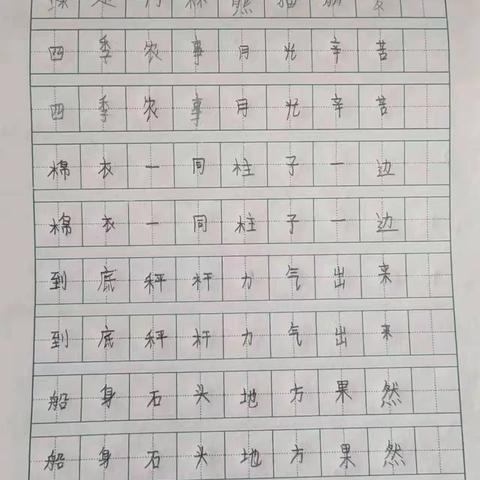 林 熊 猫 朋 友
四 季 农 事 月 光 辛 苦
四 季 农 事 月 光 辛 苦
棉 衣 一 同 柱 子 一 边
棉 衣 一 同 柱 子 一 边
到 底 秤 杆 力 气 出 来
到 底 秤 杆 力 气 出 来
船 身 石 头 地 方 果 然
船 身 石 头 地 方 果 然